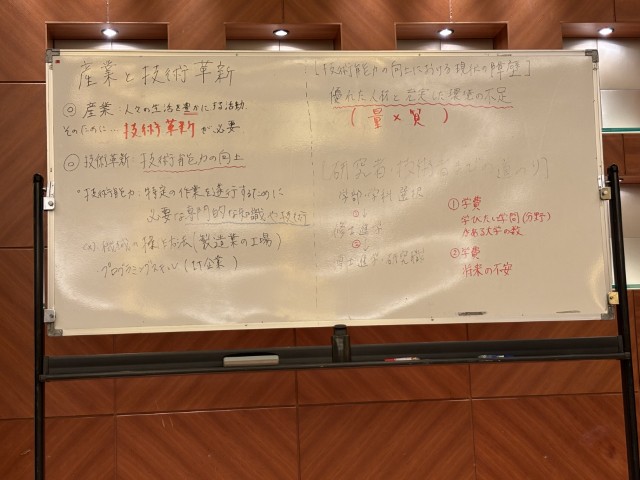 産業と技術革新
◎ 産業 人々の生活を豊かにする活動
そのために… 技術革新 が必要
◎ 技術革新: 技術能力の向上
・技術能力: 特定の作業を遂行するために
必要な専門的な知識や技術
機械の操作方法(製造業の工場)
プログラミングスキル(IT企業)
[技術能力の向上における現代の障壁]
優れた人材と充実した環境の不足
(量×質)
[研究者・技術者への道のり]
学部・学科選択
①↓
修士進学
②↓
博士進学・研究職
①学費
学びたい学問(分野)
がある大学の数
②学費
将来の不安